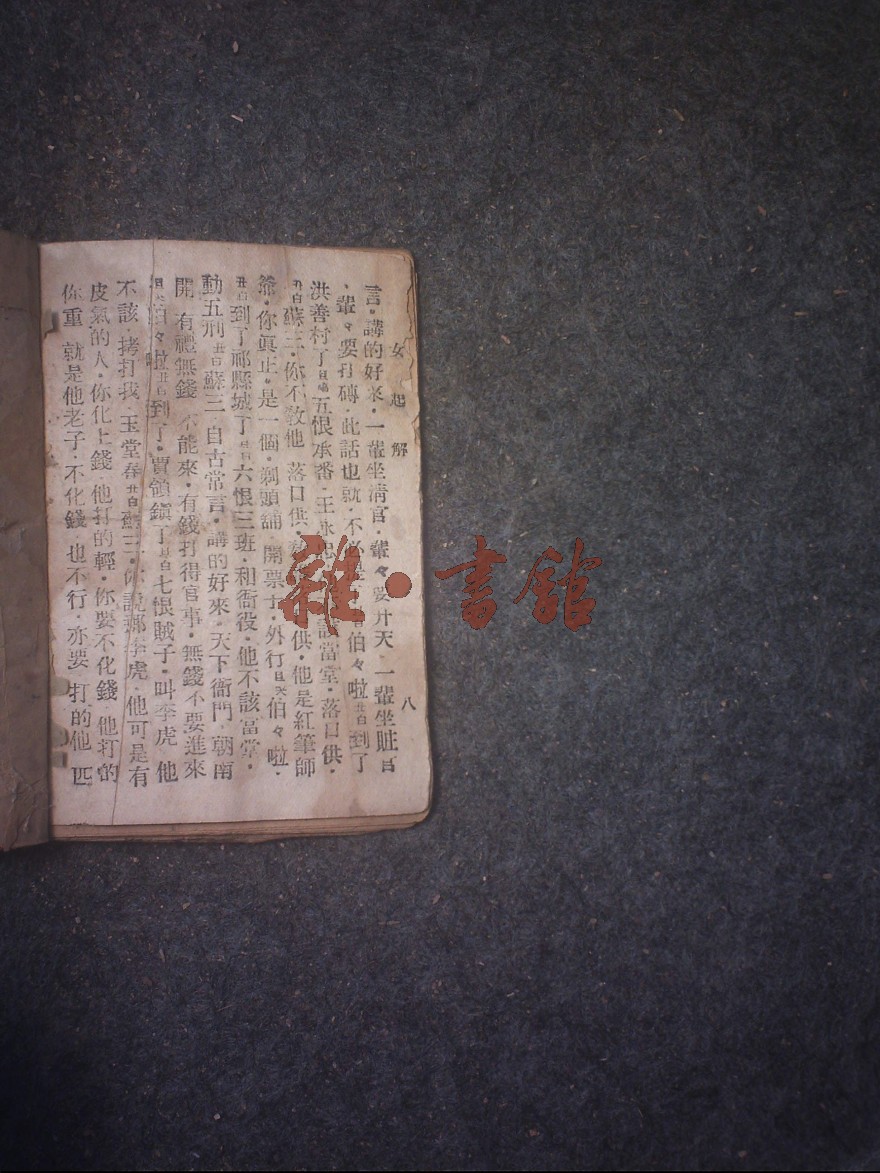 女起解
八
言·講的好來·一輩坐清官·輩々要升天·一輩坐賍官
·輩々要打磚·此話也就·不 伯々啦丑白到了
洪善村了旦唱五恨承審·王 當堂·落口供·
丑白蘇三·你不敎他 落口供· 供·他是紅筆師
爺·你眞正·是一個·剃頭舖 開票子·外行旦哭伯々啦·
丑白到了祁縣城了旦唱六恨三班·和衙役·他不該當堂·
動五刑丑白蘇三·自古常言·講的好來·天下衙門·朝南
開 有禮無錢 不能來·有錢打得官事·無錢不要進來
旦哭伯々啦丑白到了·賈鎮鎮了旦白七恨賊子·叫李虎 他
不該·拷打我·玉堂春丑白蘇三·你說那李虎·他可是有
皮氣的人·你化上錢·他打的輕·你要不化錢 他打的
你重 就是他老子·不化錢·也不行·亦要 打的他 匹
雜·書館